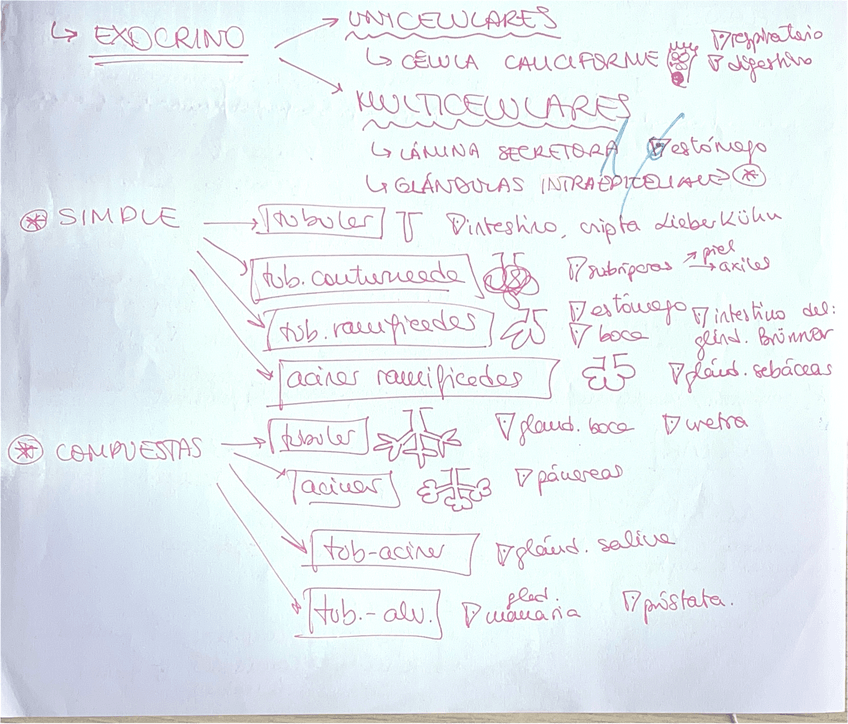 ↳ EXOCRINO
UNICELULARES
↳ CÉLULA CALICIFORME ▽ respiratorio
▽ digestivo
MULTICELULARES
↳ LÁMINA SECRETORA ▽ estómago
↳ GLÁNDULAS INTRAEPITELIALES *
* SIMPLE → tubular ▽ intestino, cripta Lieberkühn
tub. contorneada ▽ sudríparas → piel
→ axilas
tub. ramificadas ▽ estómago ▽ intestino del:
▽ boca gland. Brünner
acinar ramificadas ▽ gland. sebáceas
* COMPUESTAS → tubular ▽ gland. boca ▽ uretra
acinar ▽ páncreas
tub-acinar ▽ gland. saliva
tub.-alv. ▽ gland. mamaria ▽ próstata.